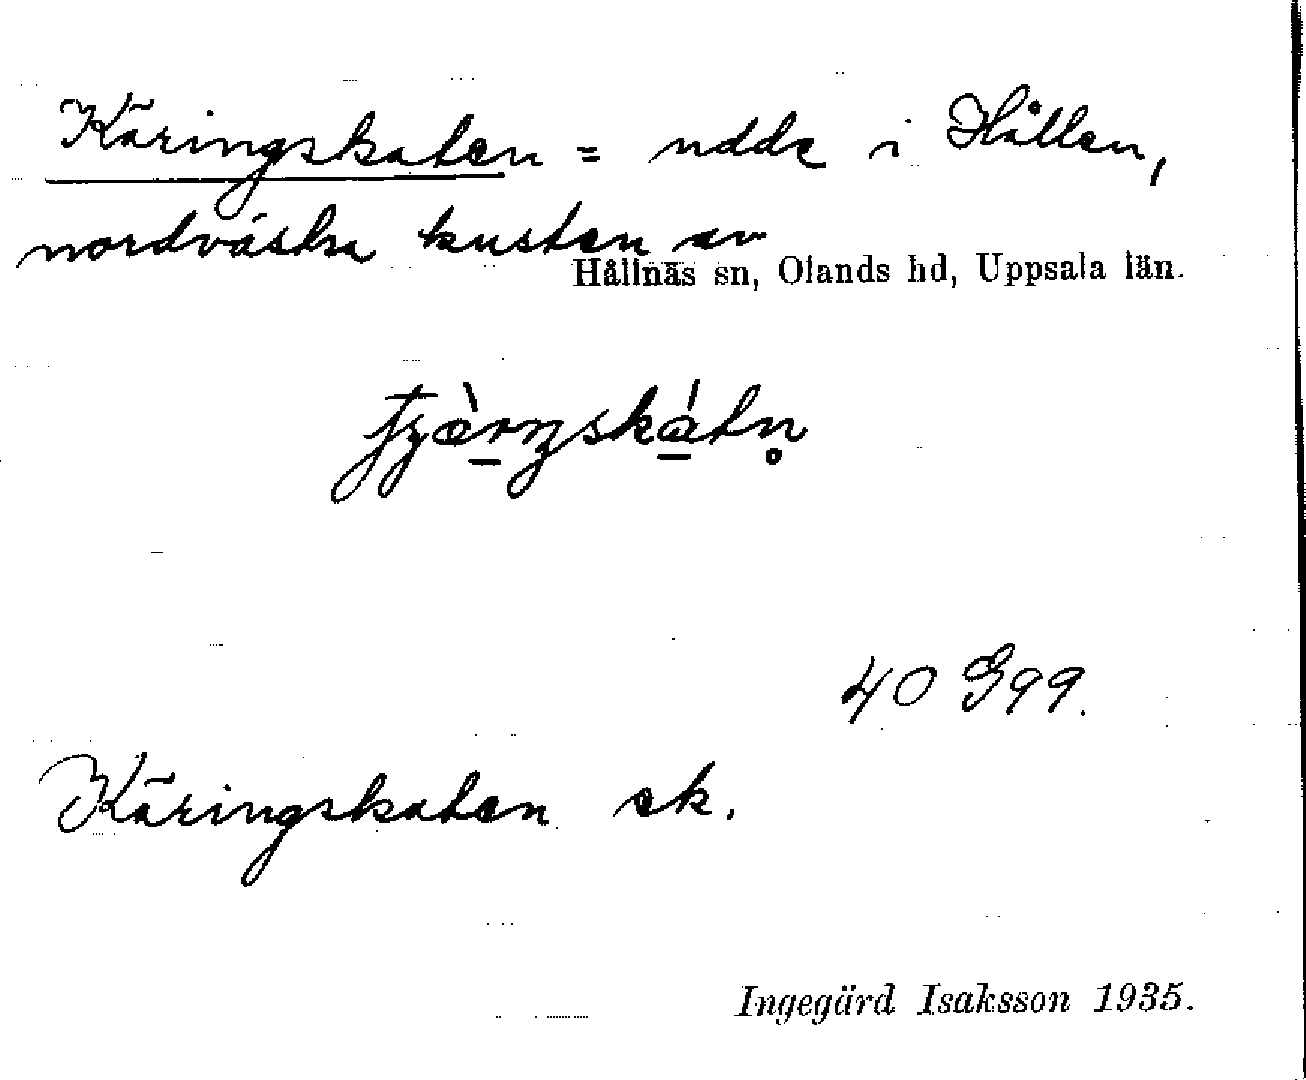 Käringskaten = udde i Hållen,
nordvästra kusten av
Hållnäs sn, Olands hd, Uppsala län.
40 G 99.
Käringskaten ek.
Ingegärd Isaksson 1935.